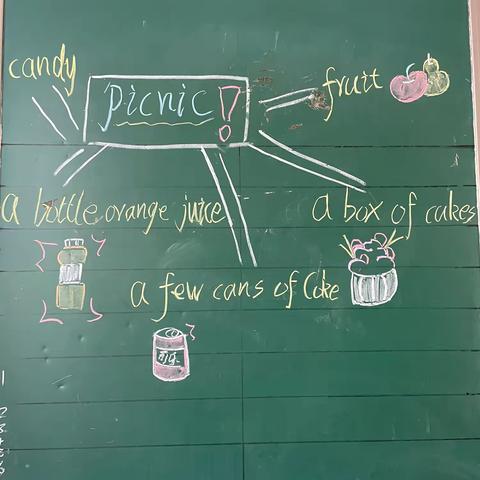 candy
picnic!
fruit
a bottle orange juice
a box of cakes
a few cans of Coke